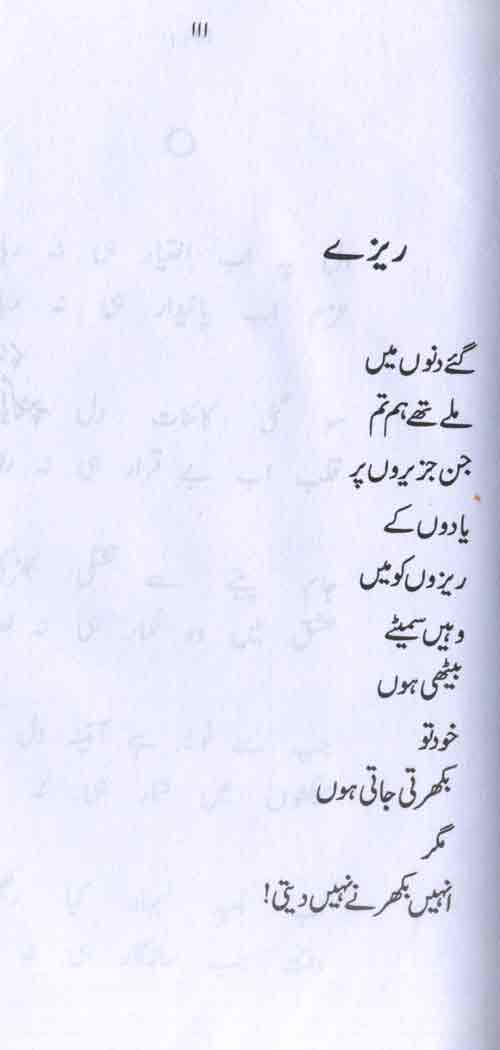 ۱۱۱
ریزے
گئے دنوں میں
ملے تھے ہم تم
جن جزیروں پر
یادوں کے
ریزوں کو میں
وہیں سمیٹے
بیٹھی ہوں
خود تو
بکھرتی جاتی ہوں
مگر
انہیں بکھرنے نہیں دیتی!